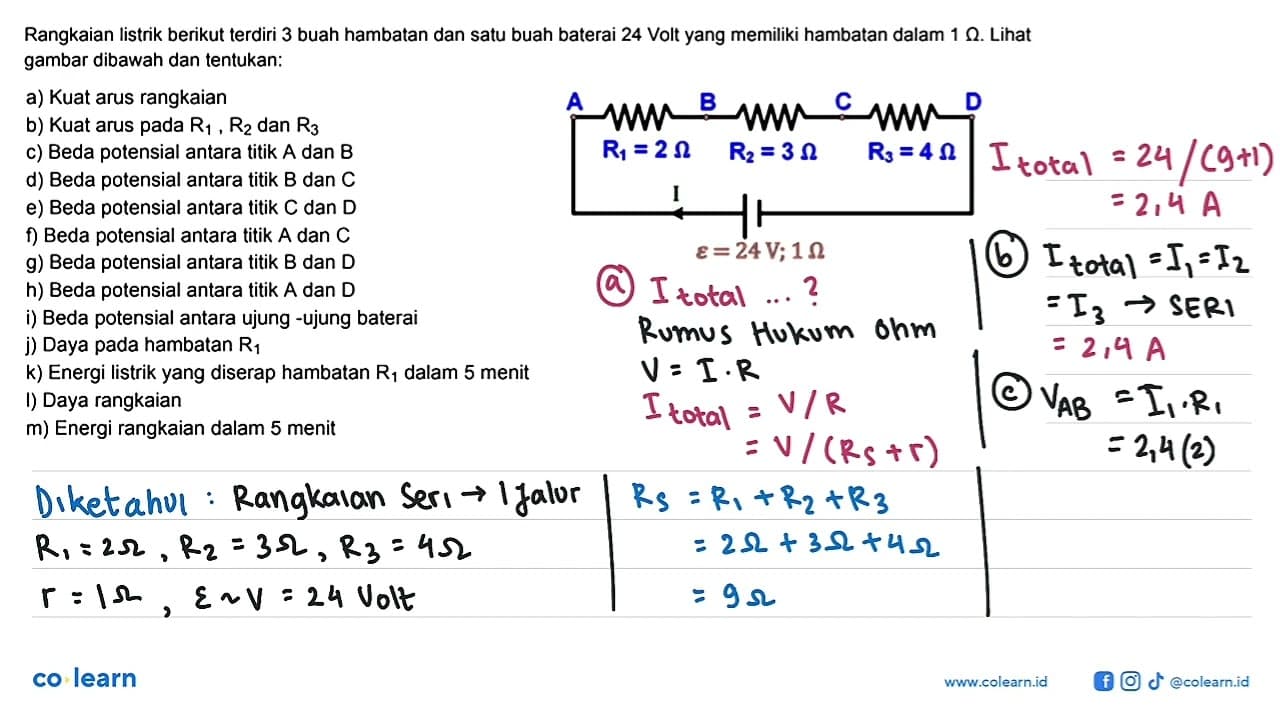 Rangkaian listrik berikut terdiri 3 buah hambatan dan satu buah baterai 24 Volt yang memiliki hambatan dalam 1 Ω. Lihat
gambar dibawah dan tentukan:
a) Kuat arus rangkaian
b) Kuat arus pada R₁ , R₂ dan R₃
c) Beda potensial antara titik A dan B
d) Beda potensial antara titik B dan C
e) Beda potensial antara titik C dan D
f) Beda potensial antara titik A dan C
g) Beda potensial antara titik B dan D
h) Beda potensial antara titik A dan D
i) Beda potensial antara ujung -ujung baterai
j) Daya pada hambatan R₁
k) Energi listrik yang diserap hambatan R₁ dalam 5 menit
l) Daya rangkaian
m) Energi rangkaian dalam 5 menit
A B C D
R₁ = 2 Ω R₂ = 3 Ω R₃ = 4 Ω
I
ε = 24 V; 1 Ω
ⓐ I total ... ?
Rumus Hukum Ohm
V = I . R
I total = V / R
= V / (Rs + r)
I total = 24 / (9+1)
= 2,4 A
ⓑ I total = I₁ = I₂
= I₃ → SERI
= 2,4 A
ⓒ VAB = I₁ . R₁
= 2,4 (2)
Diketahui : Rangkaian Seri → 1 Jalur
R₁ = 2Ω , R₂ = 3Ω , R₃ = 4Ω
r = 1Ω , ε ~ V = 24 Volt
Rs = R₁ + R₂ + R₃
= 2Ω + 3Ω + 4Ω
= 9Ω
co learn
www.colearn.id
@colearn.id